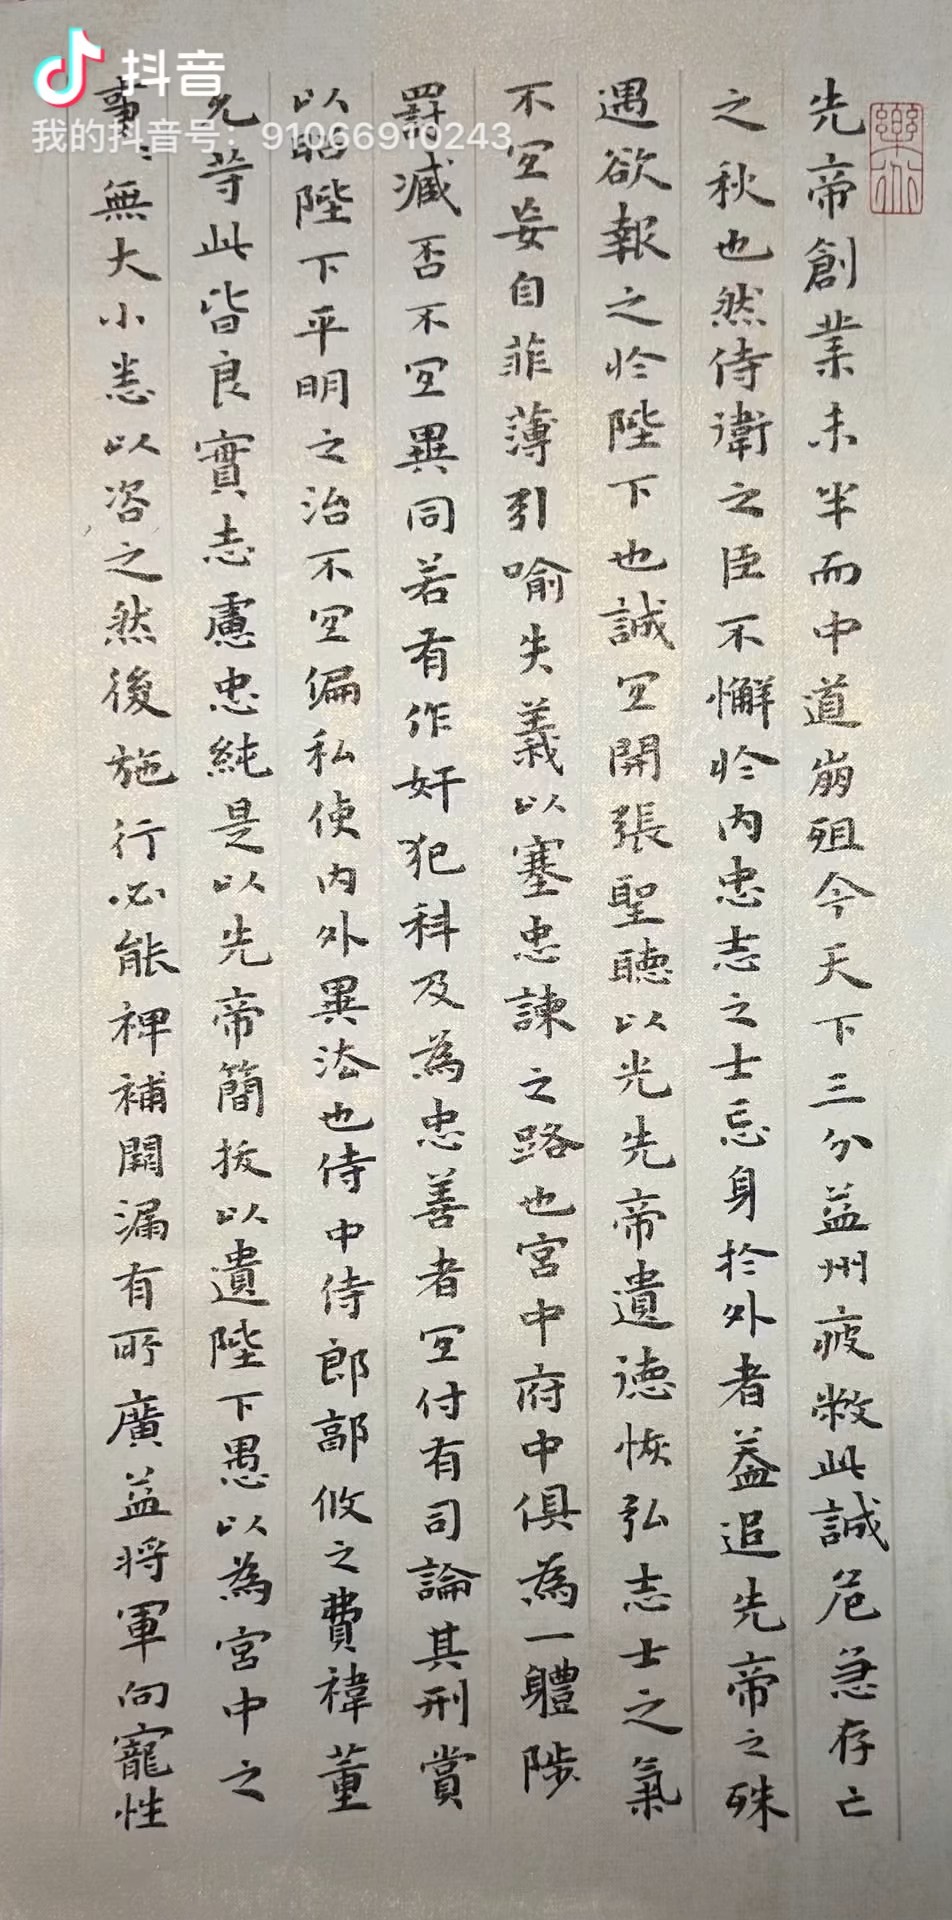 抖音
我的抖音号：91066910243
樂
先帝創業未半而中道崩殂今天下三分益州疲敝此誠危急存亡
之秋也然侍衛之臣不懈於内忠志之士忘身於外者蓋追先帝之殊
遇欲報之於陛下也誠宜開張聖聽以光先帝遺德恢弘志士之氣
不宜妄自菲薄引喻失義以塞忠諫之路也宮中府中俱為一體陟
罰臧否不宜異同若有作奸犯科及為忠善者宜付有司論其刑賞
以昭陛下平明之治不宜偏私使内外異法也侍中侍郎郭攸之費禕董
允等此皆良實志慮忠純是以先帝簡拔以遺陛下愚以為宮中之
事：無大小悉以咨之然後施行必能裨補闕漏有所廣益將軍向寵性